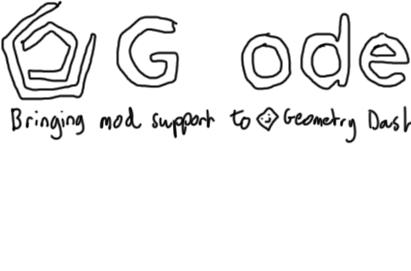 G ode
Bringing mod support to Geometry Dash